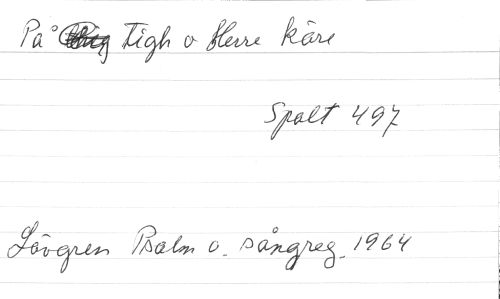 På Tigh o Herre käre
Spalt 497
Lövgren Psalm o. sångreg. 1964